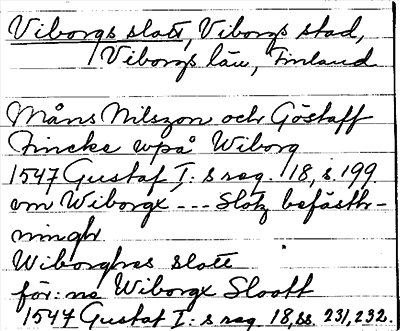 Viborgs slott, Viborgs stad,
Viborgs län, Finland
Måns Nilszon och Göstaff
Fincke wpå Wiborg
1547 Gustaf I: s reg. 18, s. 199
om Wiborgx --- Slotz befästh-
ningh
Wiborghes slott
för: na Wiborgx Slooth
1547 Gustaf I: s reg 18, ss. 231, 232.